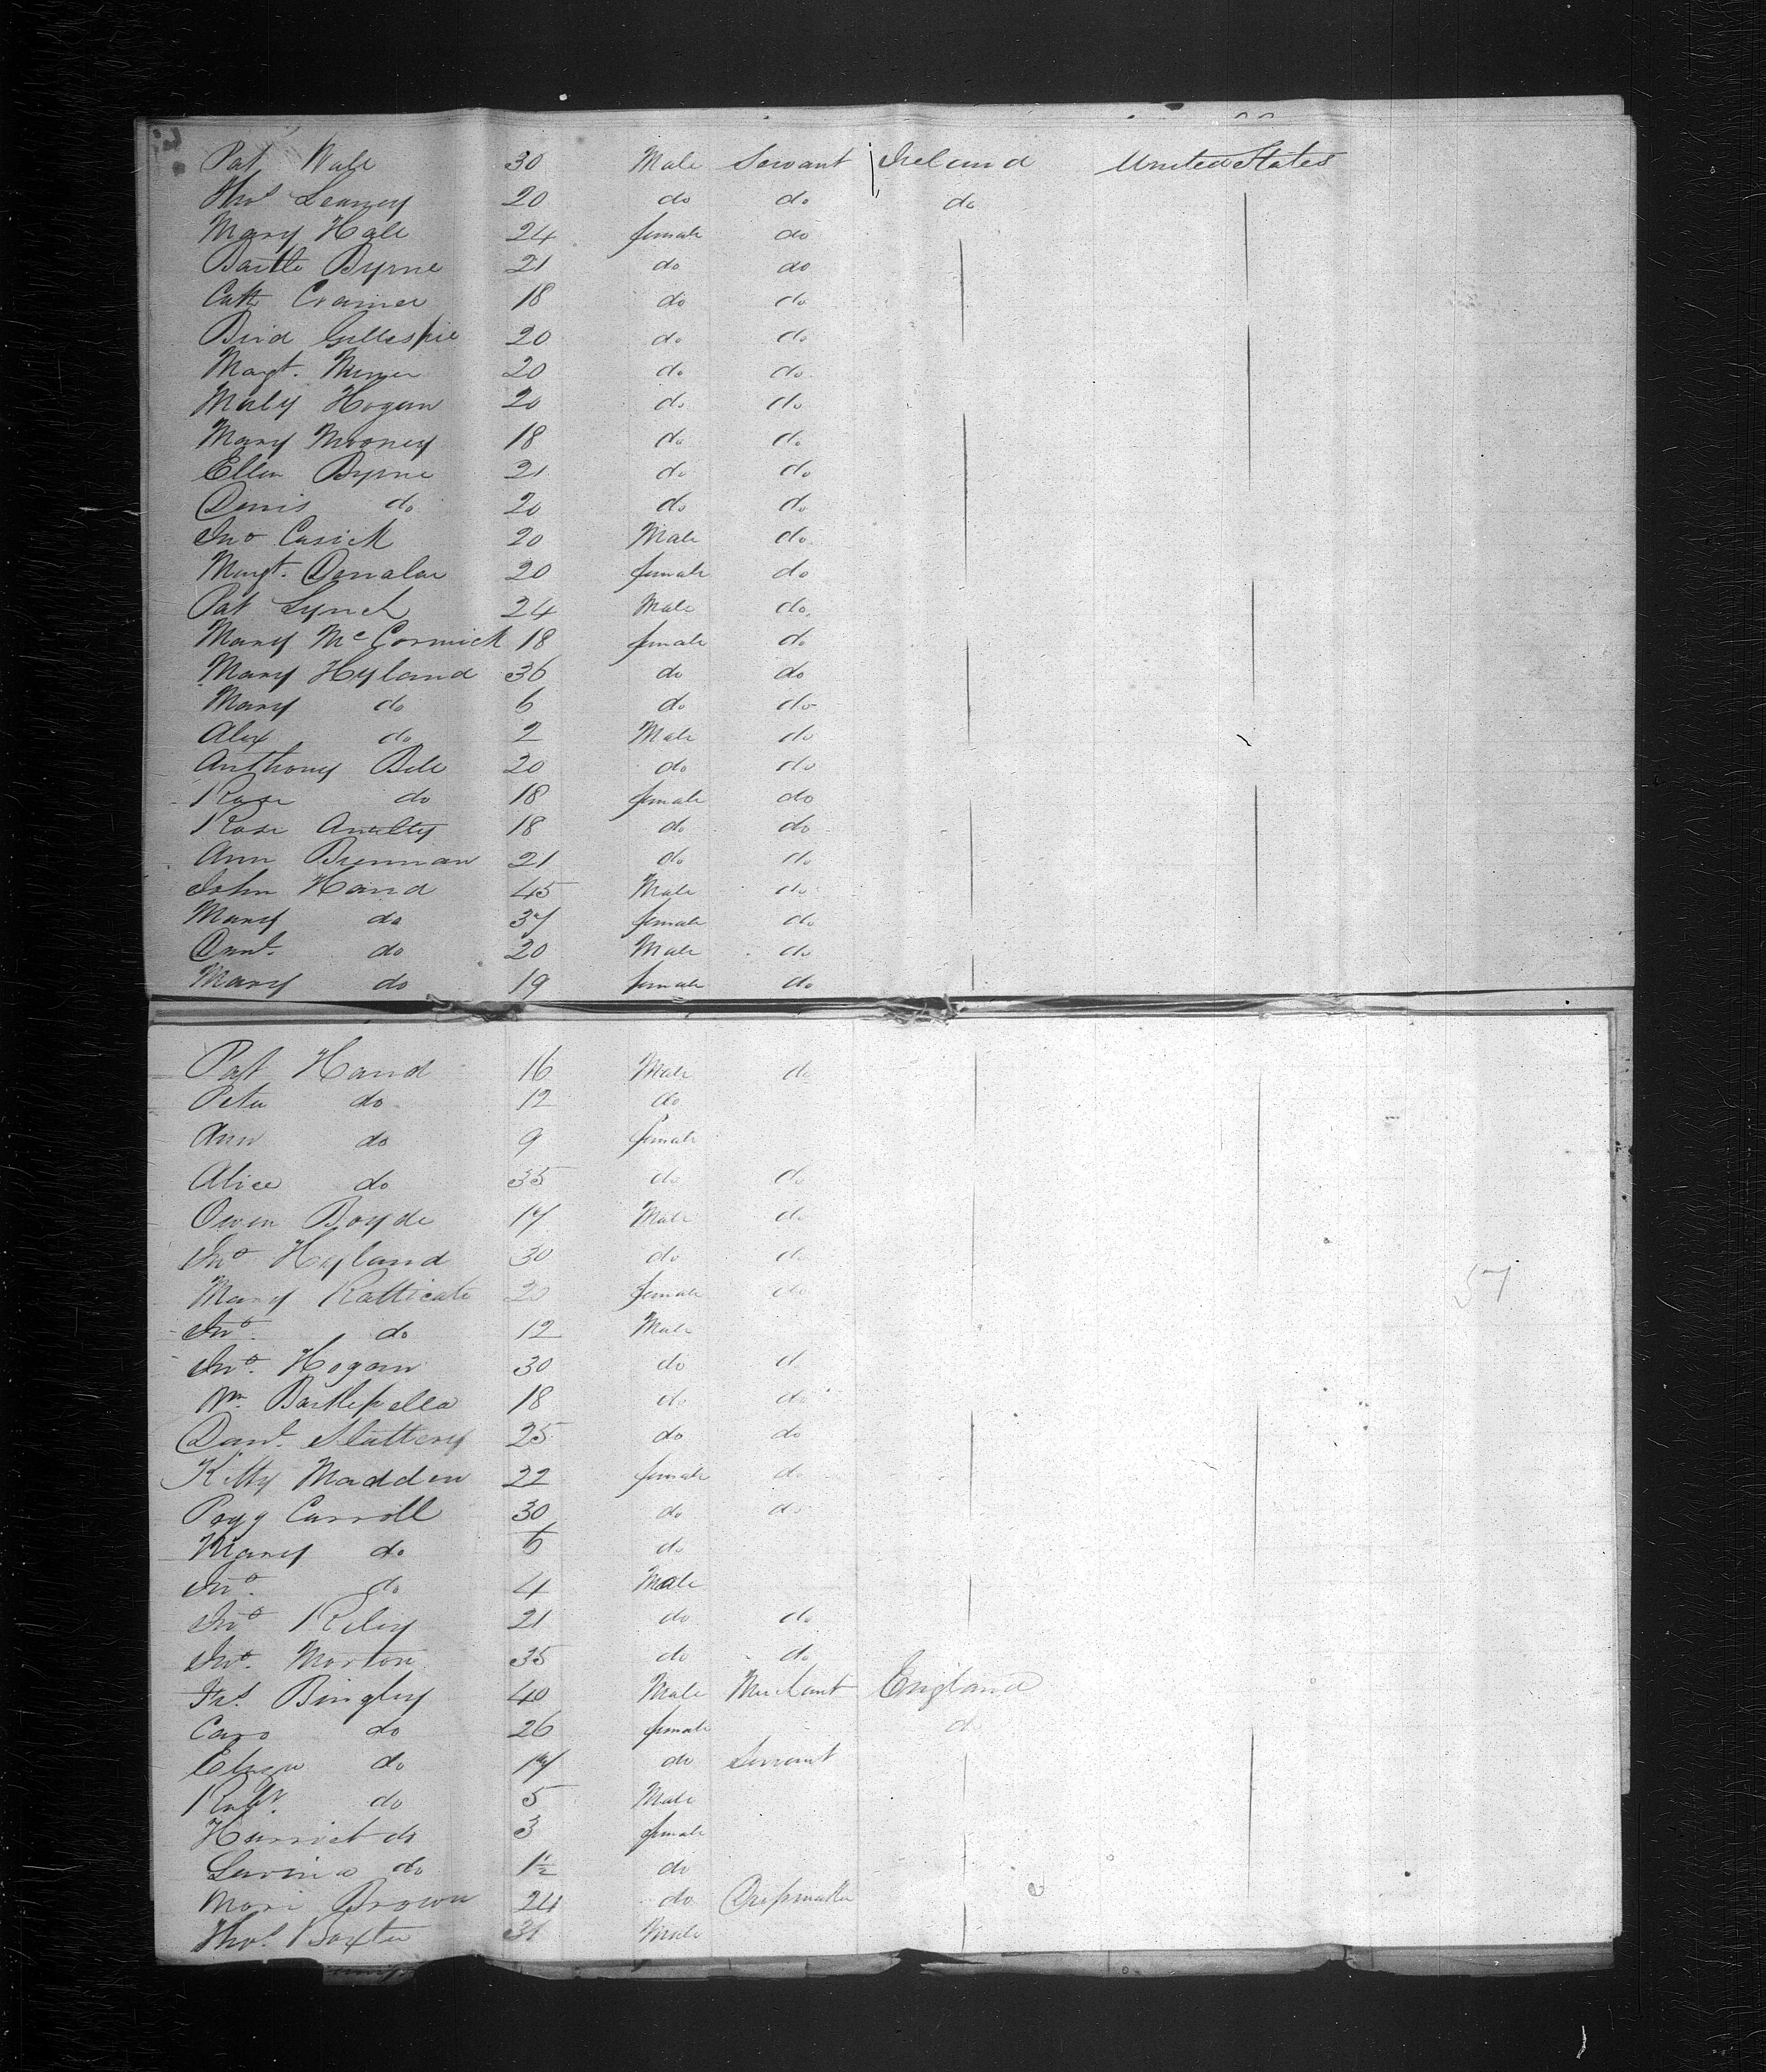 Pat Wall 30 Male Servant Ireland United States
Thos Leaney 20 do do do
Mary Hall 24 female do
Bartle Byrne 21 do do
Cath Cramer 18 do do
Brid Gillespie 20 do do
Magt. 20 do do
Maly Hogan 20 do do
Mary Mooney 18 do do
Ellen Byrne 21 do do
Denis do 20 do do
Jno Cusick 20 Male do
Margt. 20 female do
Pat Lynch 24 Male do
Mary McCormick 18 female do
Mary Hyland 36 do do
Mary do 6 do do
Alex do 2 Male do
Anthony Bell 20 do do
Rose do 18 female do
Rose 18 do do
Ann Brennan 21 do do
John Hand 45 Male do
Mary do 37 female do
Danl. do 20 Male do
Mary do 19 female do
Pat Hand 16 Male do
Peter do 12 do
Ann do 9 female
Alice do 35 do do
Owen Boyde 17 Male do
Jno Hyland 30 do do
Mary Ratticate 20 female do
57
Jno. do 12 Male
Jno. Hogan 30 do do
Wm. 18 do do
Danl. Slattery 25 do do
Kitty Madden 22 female do
Pegy Carroll 30 do do
Mary do 6 do
Jno. do 4 Male
Jno Riley 21 do do
Jno. Morton 35 do do
Jas. Bingley 40 Male Merchant England
Caro do 26 female do
Eliza do 17 do Servant
Robt. do 5 Male
Harriet do 3 female
Lavina do 1½ do
Mari Brown 24 do Dressmaker
Thos. Baxter 31 Male